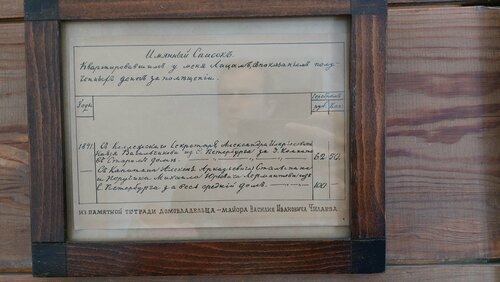 Имянный Списокъ
Квартировавшимъ у меня Лицамъ, споказаніемъ полу-
ченныхъ денегъ за помѣщеніи.
Годы.
Серебромъ
руб. Коп.
1841.
Съ Коллежскаго Секретаря Александра Иларіоновича
Князя Васильчикова изъ С. Петербурга за 3. Комнаты
въ Старомъ домѣ.
62. 50.
Съ Капитана Алексѣя Аркадьевича Столыпина
и Поручика Михаила Юрьевича Лермантова изъ
С. Петербурга за весь средній домъ.
100.
ИЗ ПАМЯТНОЙ ТЕТРАДИ ДОМОВЛАДЕЛЬЦА — МАЙОРА ВАСИЛИЯ ИВАНОВИЧА ЧИЛАЕВА